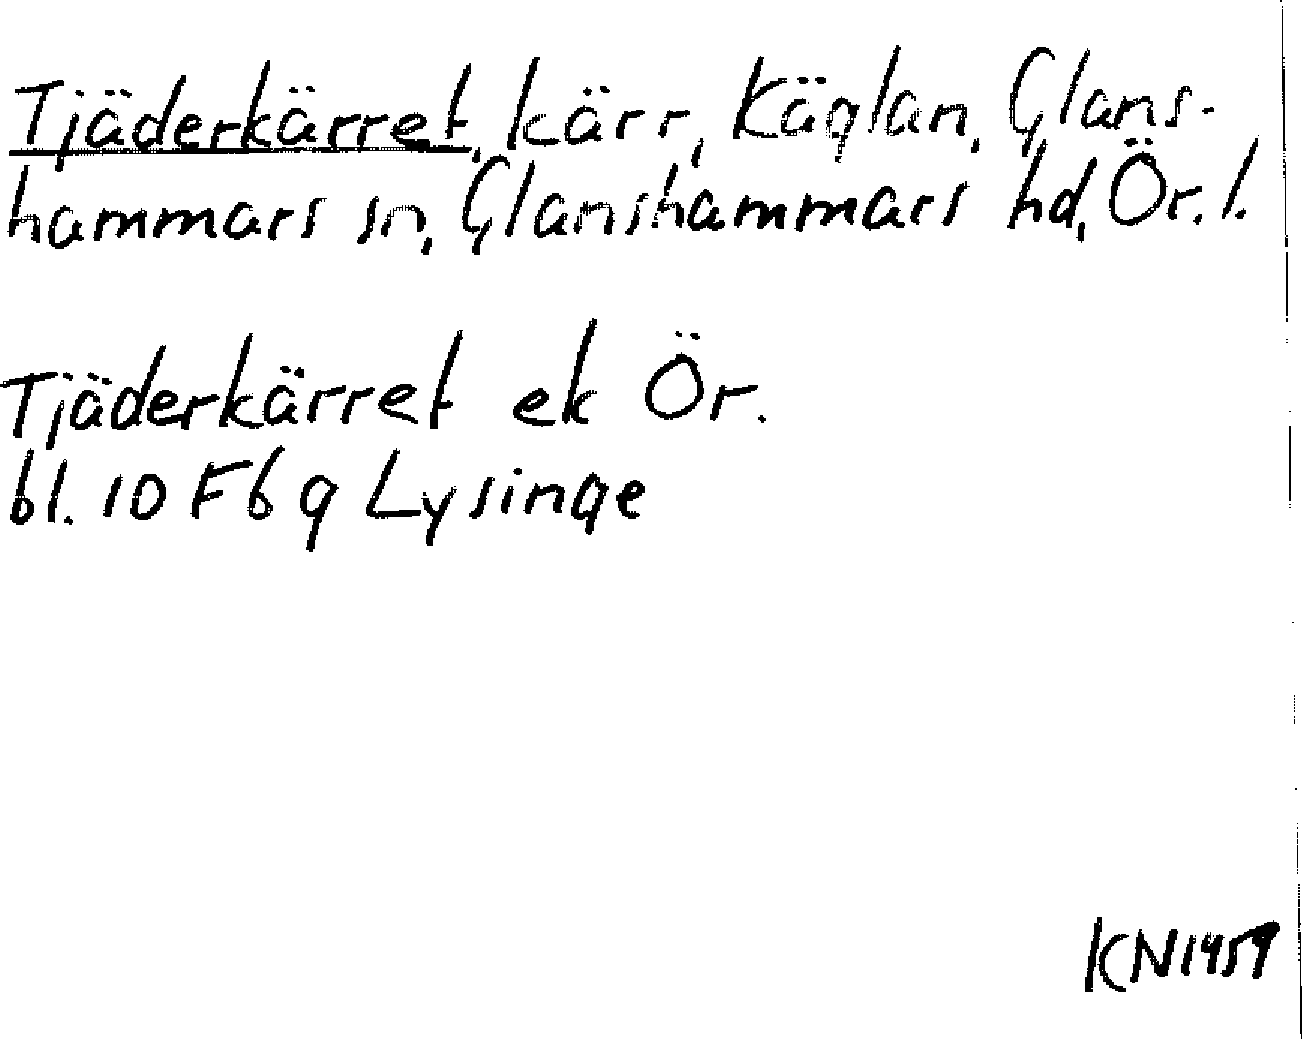 Tjäderkärret, kärr, Käglan, Glans-
hammars sn, Glanshammars hd, Ör. l.
Tjäderkärret ek Ör.
bl. 10 F6g Lysinge
KN1459